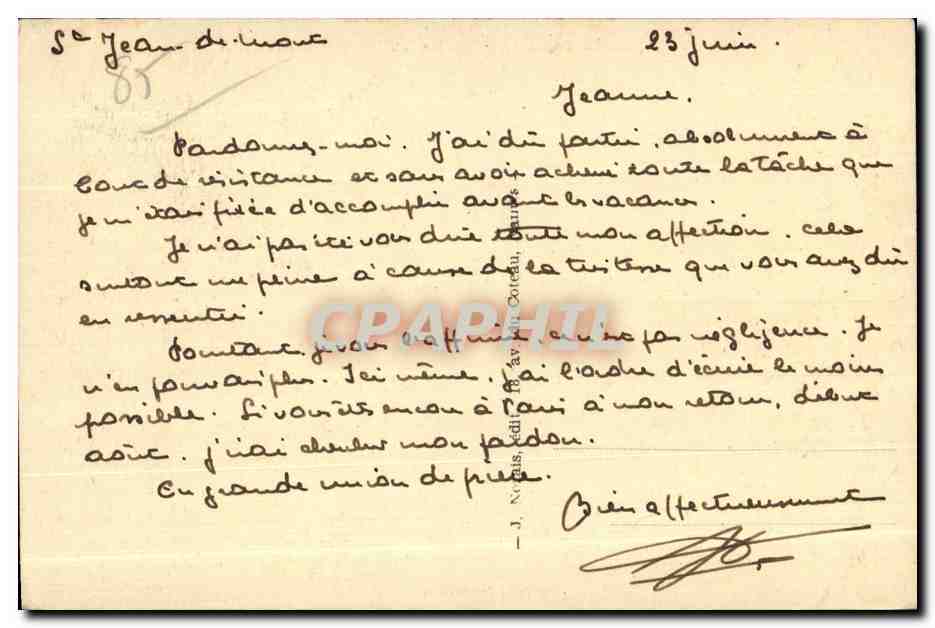 St Jean-de-Mont 23 juin.
85
Jeanne.
Pardonnez-moi. J'ai dû partir, absolument à
bout de résistance et sans avoir achevé toute la tâche que
je m'étais fixée d'accomplir avant les vacances.
Je n'ai pas été vous dire toute mon affection. Cela
surtout me peine à cause de la tristesse que vous avez dû
en ressentir.
Pourtant, je vous l'affirme, ce n'est pas négligence. Je
n'en pouvais plus. Ici même, j'ai l'ordre d'écrire le moins
possible. Si vous êtes encore à Paris à mon retour, début
août, j'irai chercher mon pardon.
En grande union de prière.
Bien affectueusement
— J. Nozais, édit., 18, av. du Coteau, Nantes
CPAPHIL